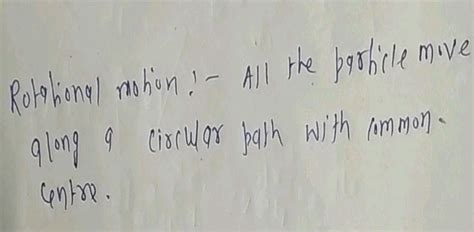 Rotational motion :- All the particle move
along a circular path with common
centre.